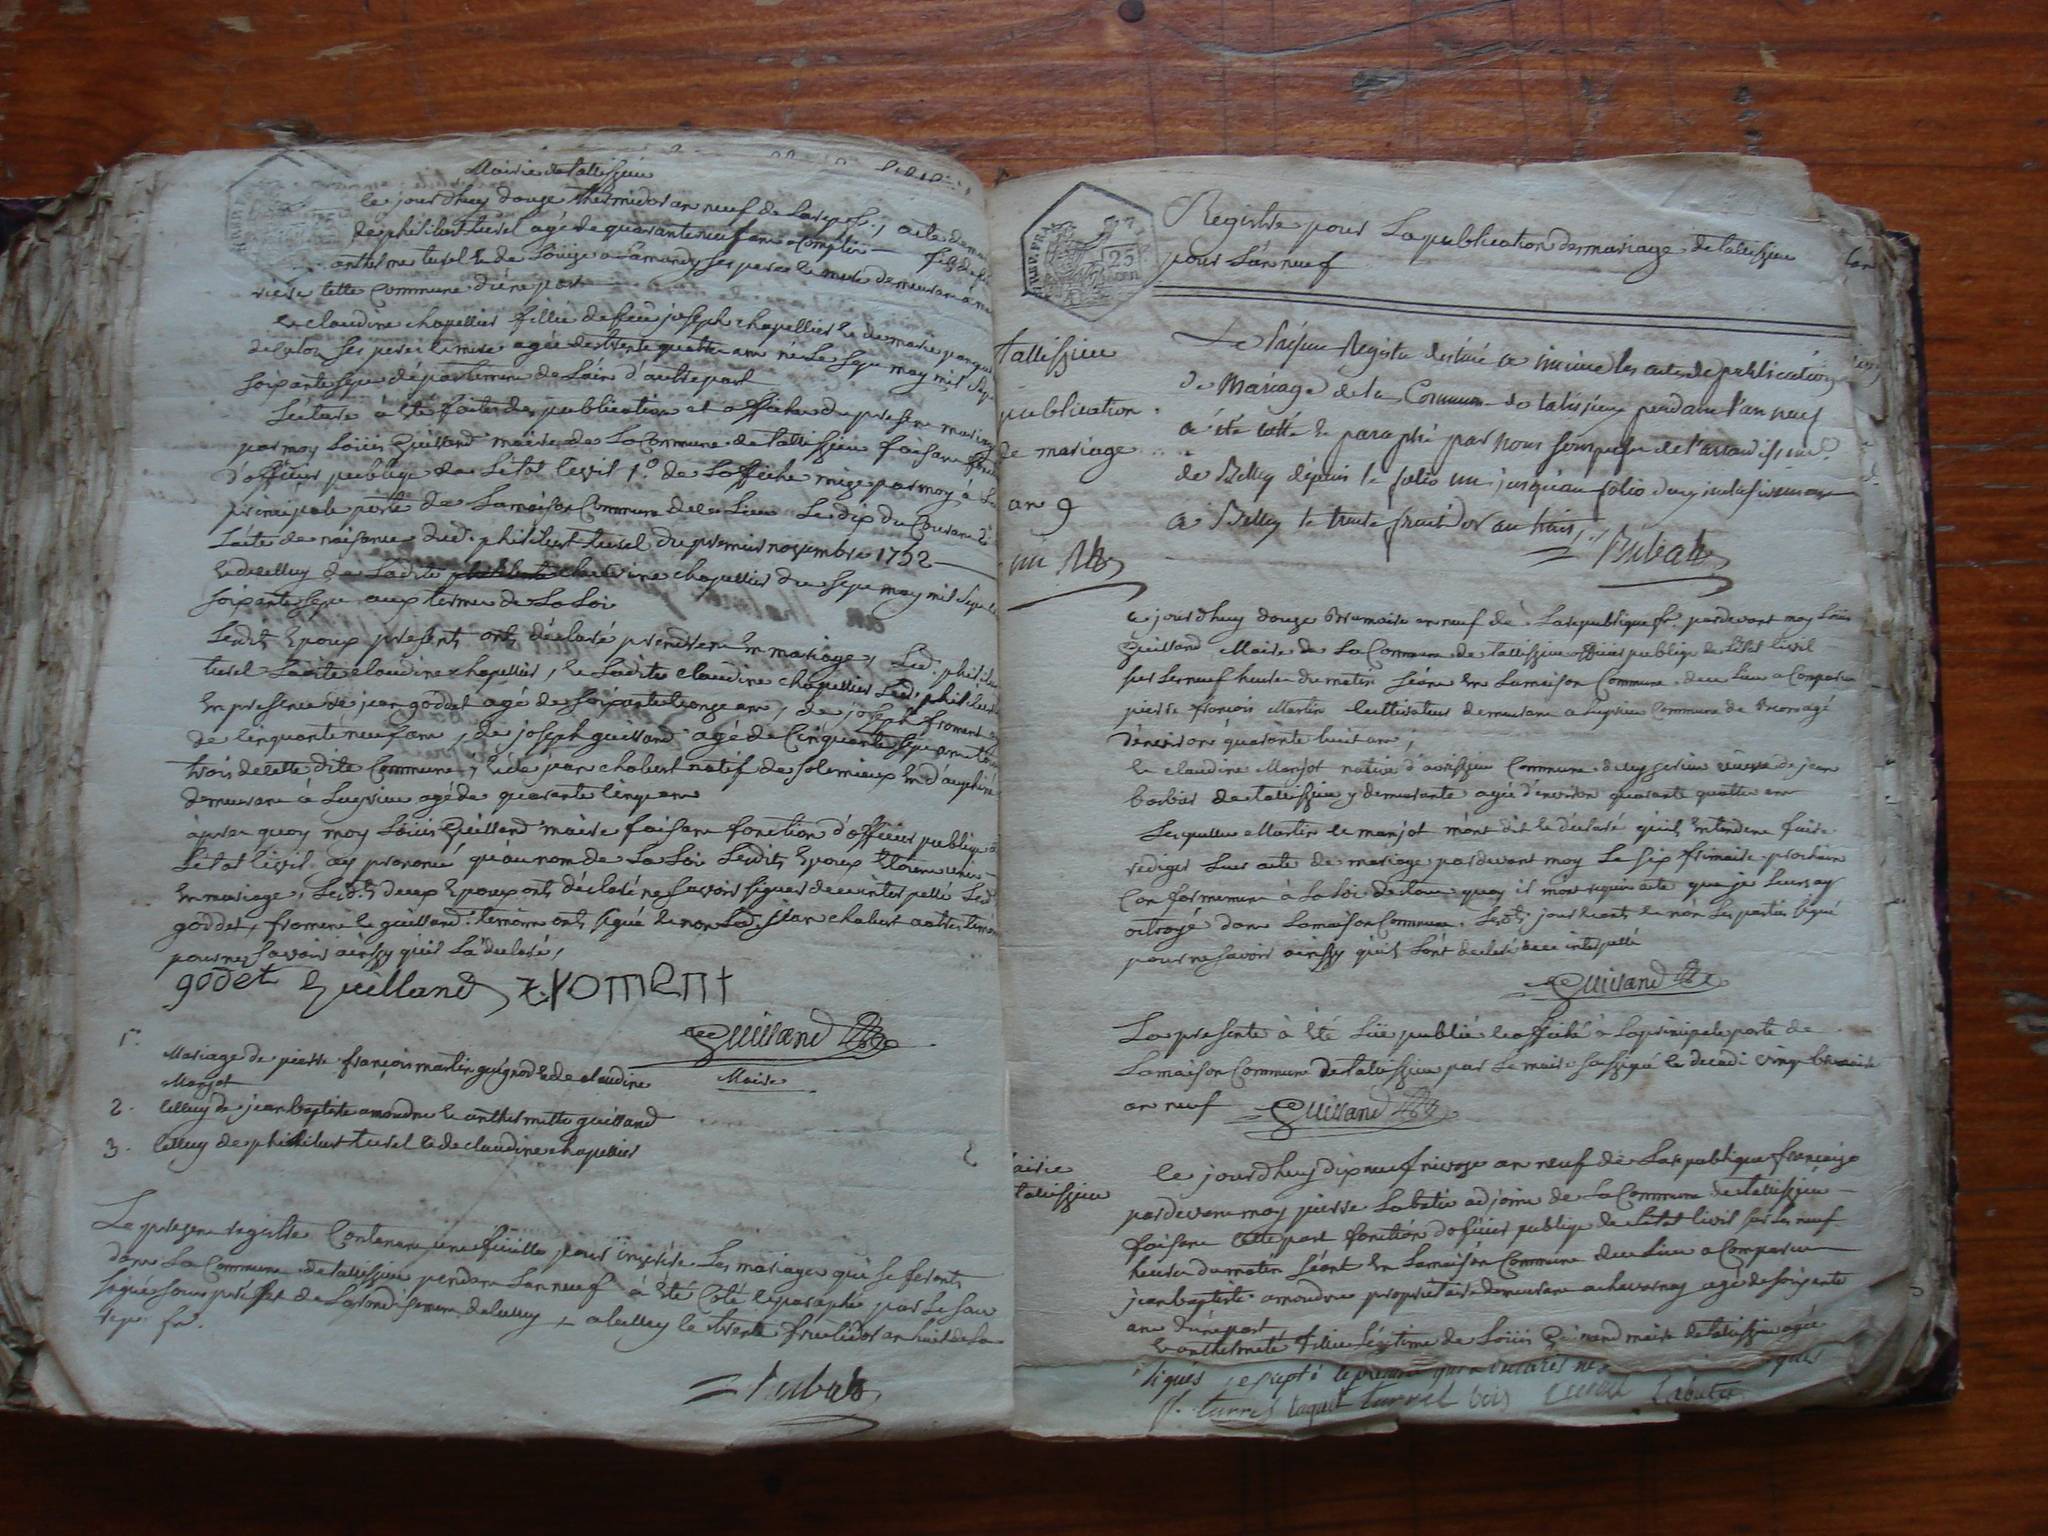 Mairie de tallissieu
le jourd'huy douze thermidor an neuf de la rep. f.; acte de
de philibert turel agé de quarante neuf ans accomplis fils de
anthelme turel & de Louise amandry ses pere & mere demeurant a
cette Commune d'une part
& claudine chapellier fillie de feu joseph chapellier & de marie
de culoz ses pere & mere agée de trente quatre ans né le sept may mil sept
soixante sept département de L'ain d'autre part
Lecture a été faite des publication et affiche du present mariage
par moy Loüis Guilland maire de La Commune de tallissieu faisant
d'officier publique de L'etat Civil 1° de L'affiche mize par moy à La
principale porte de La maison Commune de ce Lieu Le dix du Courant 2°
L'acte de naissance dud. philibert turel du premier novembre 1752
& celluy de Ladite claudine chapellier du sept may mil sept
soixante sept aux terme de La Loi
Lesdits Epoux presents ont déclaré prendre en mariage, Led. philibert
turel Ladite claudine chapellier, & Ladite claudine chapellier Led. philibert
En presence de jean goddet agé de soixante & onze ans, de joseph froment
de Cinquante neuf ans, de joseph guilland agé de Cinquante sept ans tous
trois de cette dite Commune, & de jean chabert natif de solemieux en d'auphiné
demeurant à Luyrieu agé de quarante Cinq ans
après quoy moy Loüis Guilland maire faisant fonction d'officier publique
L'etat Civil ay prononcé qu'au nom de La Loi Lesdits Epoux etoient unis
En mariage, Lesd.ts deux Epoux ont déclaré ne savoir signer de ce interpellé Lesd.
goddet, froment & guilland temoins ont signé & non Led. jean chabert autre temoin
pour ne savoir ainssy qu'il L'a déclaré,
godet Guilland froment
Guilland
Maire
1.
Mariage de pierre françois martin & de claudine
Manjot
2. Celluy de jean baptiste amoudru & anthelmette guilland
3. Celluy de philibert turel & de claudine chapellier
Le present registre Contenant une feüille pour inscrire Les mariages qui se feront
dans La Commune de tallissieu pendant L'an neuf à été Coté & paraphé par Le sou
signé sous préfet de L'arondissement de belley, a belley le trente fructidor an huit de la
rep. fr.
Rubat
REP. FRA.
25
CEN
Registre pour La publication des mariage de tallissieu
pour L'an neuf
tallissieu
publication
de mariage
an 9
un Rb
Le présent Registre destiné a inscrire les actes de publication
de Mariage de la Commune de talissieux pendant l'an neuf
a été cotté & paraphé par nous souspréfet de l'arrondissem.t
de Belley dépuis le folio un jusqu'au folio deux inclusivement
a Belley le trente fructidor an huit,
Rubat
Le jourdhuy douze Brumaire an neuf de La republique fr. pardevant moy Loüis
Guilland Maire de La Commune de tallissieu officier publique de L'etat Civil
sur Les neuf heures du matin séant En La maison Commune de ce Lieu a Comparu
pierre françois Martin Cultivateur demeurant a Luyrieu Commune de agé
d'environ quarante huit ans,
& claudine Manjot native d'avrissieu Commune de veuve de jean
barbier de tallissieu y demeurante agée d'environ quarante quattre ans
Lesquels Martin & manjot m'ont dit & déclaré qu'ils Entendent faire
rediger Leur acte de mariage pardevant moy Le six frimaire prochain
Conformement à La Loi de tout quoy il m'ont requis acte que je Leur ay
octroyé dans La maison Commune. Lesd.ts jour & ont & non Les parties signé
pour ne savoir ainssy qu'ils L'ont declaré de ce interpellé
Guilland
La presente à été Lüe publié & affiché à La principale porte de
La maison Commune de tallissieu par Le maire soussigné Le decadi vingt brumaire
an neuf Guilland
Mairie
tallissieu
le jourd'huy dixneuf nivoze an neuf de La republique françaize
pardevant moy pierre Labatie adjoint de La Commune de tallissieu
faisant Cette part fonction d'officier publique de L'etat Civil sur Les neuf
heures du matin séant En La maison Commune de ce Lieu a Comparu
jean baptiste amoudru proprietaire demeurant a chavornay agé de soixante
ans d'une part
& anthelmette fillie Legitime de Loüis Guilland maire de tallissieu agée
signés, exepté le
turrel taquet turrel bois Labatie